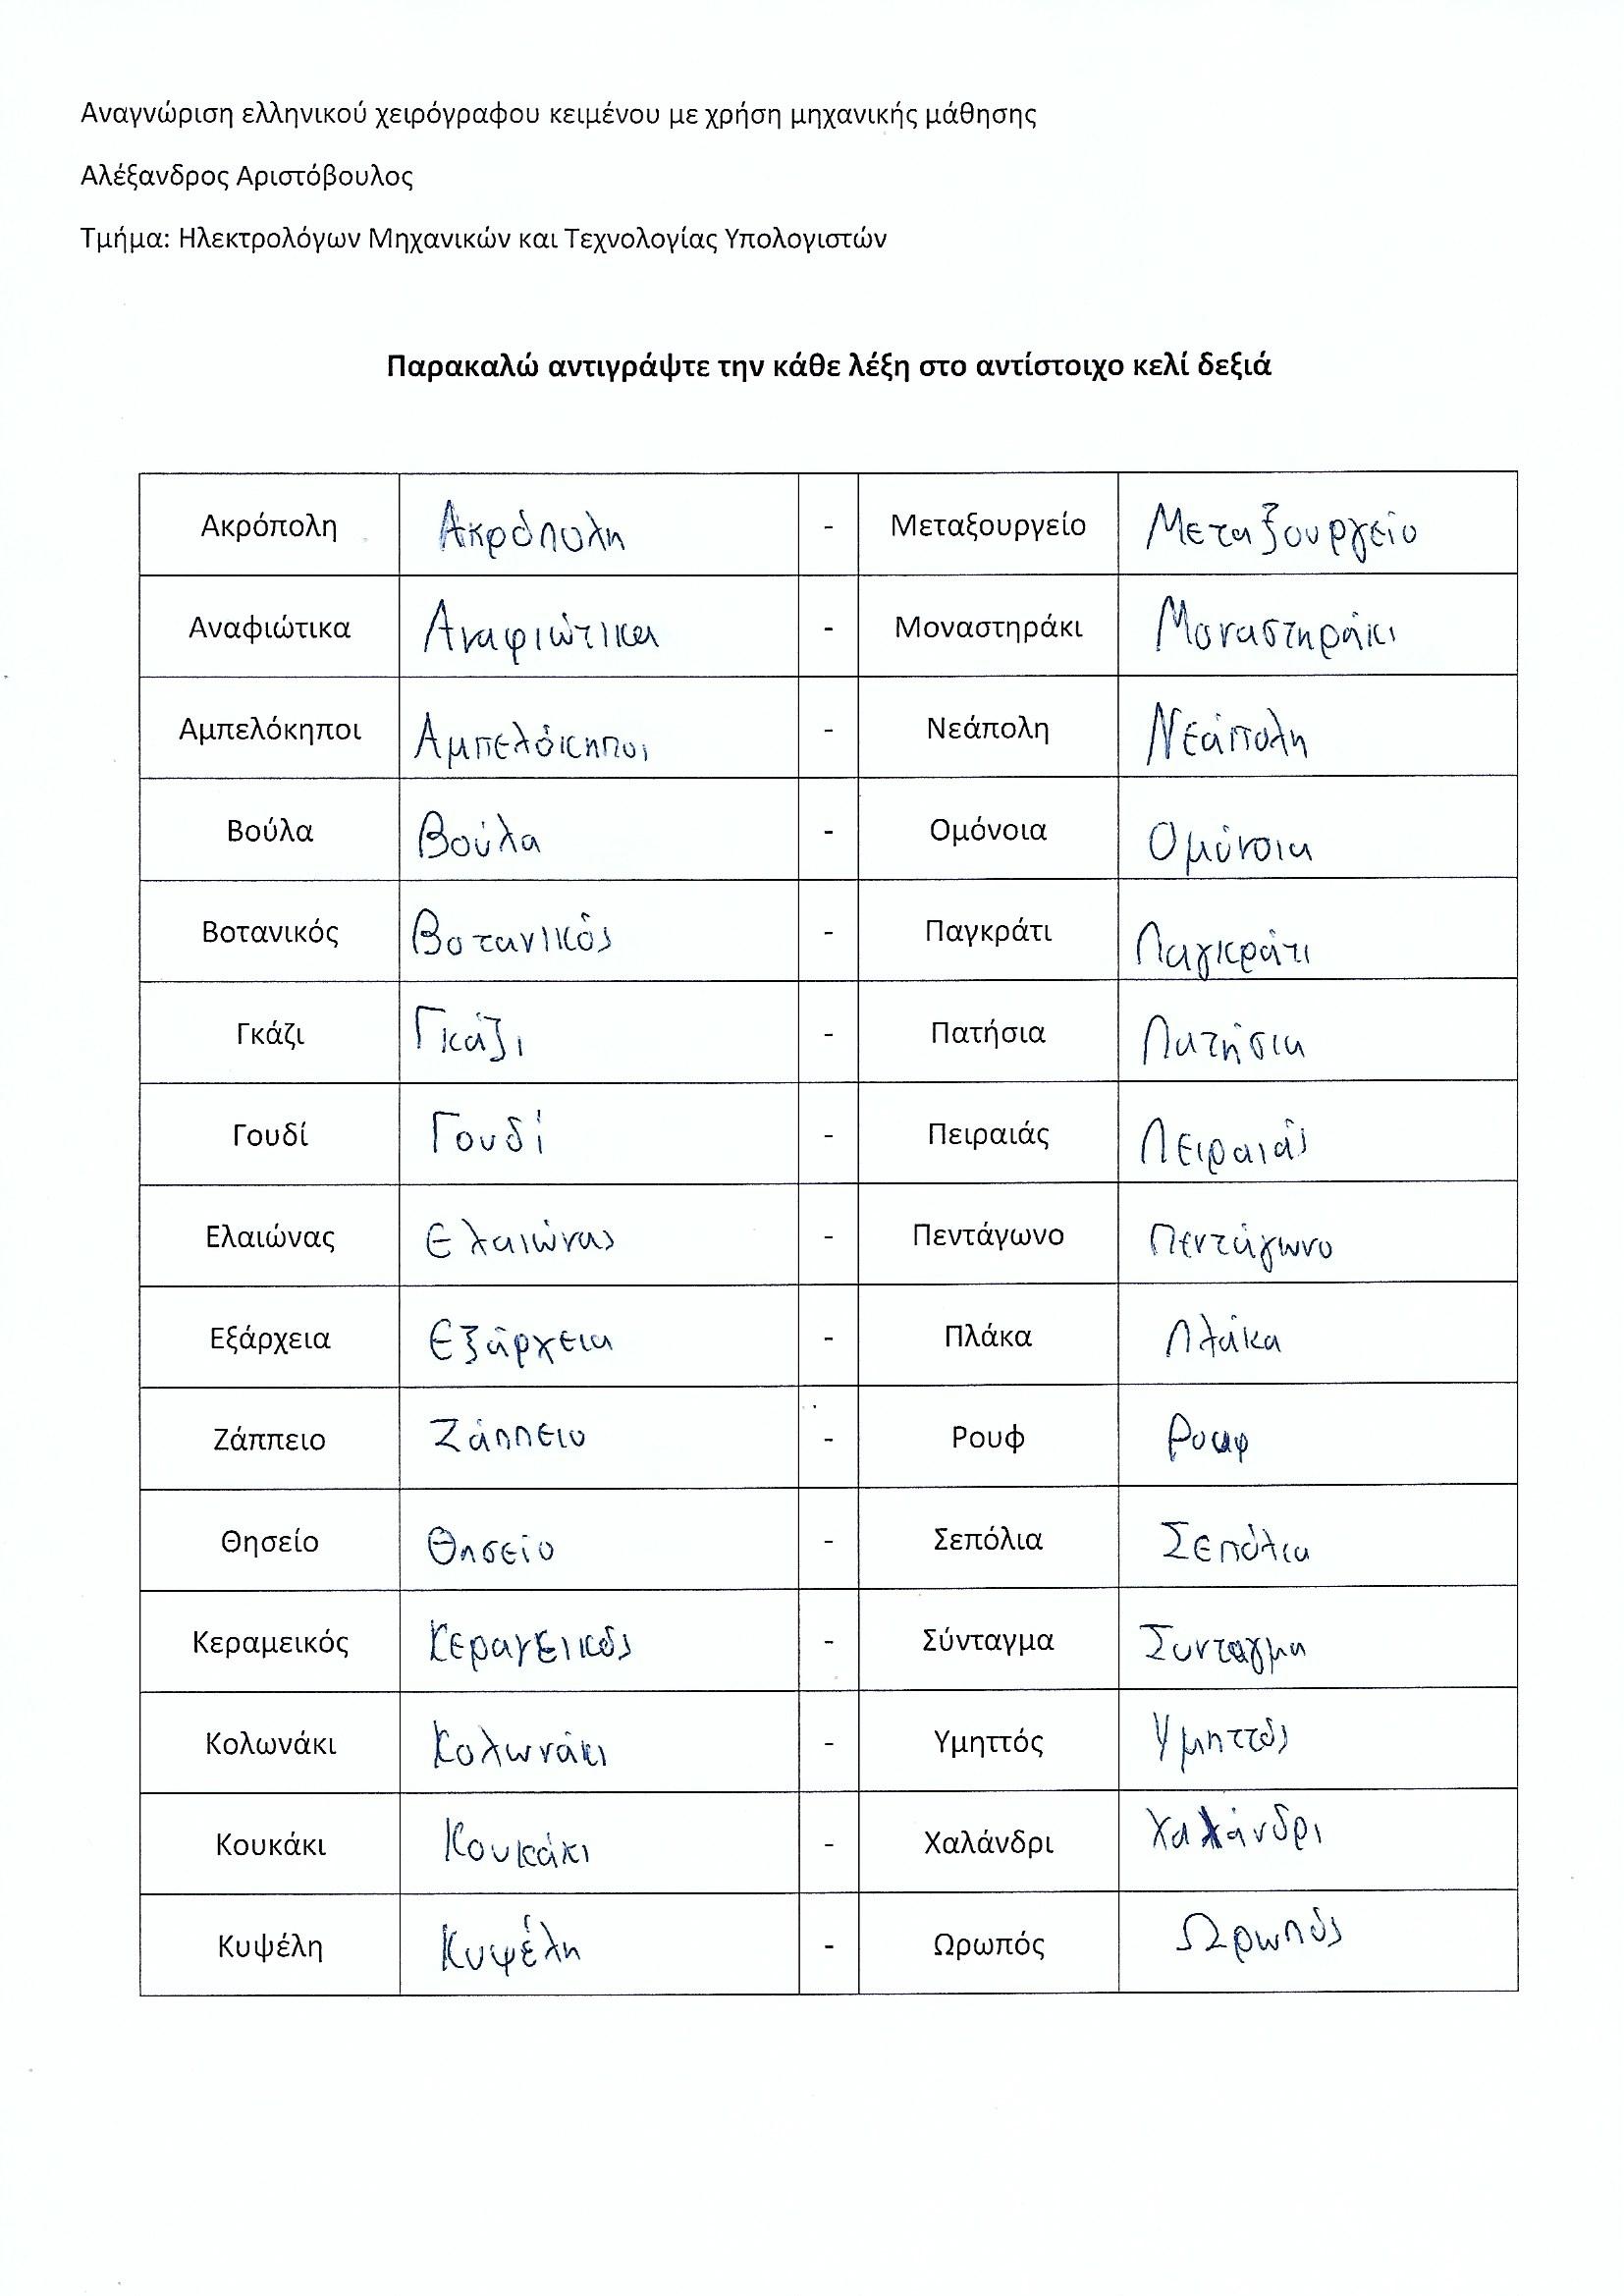 Αναγνώριση ελληνικού χειρόγραφου κειμένου με χρήση μηχανικής μάθησης
Αλέξανδρος Αριστόβουλος
Τμήμα: Ηλεκτρολόγων Μηχανικών και Τεχνολογίας Υπολογιστών
Παρακαλώ αντιγράψτε την κάθε λέξη στο αντίστοιχο κελί δεξιά
Ακρόπολη Ακρόπολη - Μεταξουργείο Μεταξουργείο
Αναφιώτικα Αναφιώτικα - Μοναστηράκι Μοναστηράκι
Αμπελόκηποι Αμπελόκηποι - Νεάπολη Νεάπολη
Βούλα Βούλα - Ομόνοια Ομόνοια
Βοτανικός Βοτανικός - Παγκράτι Παγκράτι
Γκάζι Γκάζι - Πατήσια Πατήσια
Γουδί Γουδί - Πειραιάς Πειραιάς
Ελαιώνας Ελαιώνας - Πεντάγωνο Πεντάγωνο
Εξάρχεια Εξάρχεια - Πλάκα Πλάκα
Ζάππειο Ζάππειο - Ρουφ Ρουφ
Θησείο Θησείο - Σεπόλια Σεπόλια
Κεραμεικός Κεραγεικός - Σύνταγμα Συνταγμα
Κολωνάκι Κολωνάκι - Υμηττός Υμηττός
Κουκάκι Κουκάκι - Χαλάνδρι Χαλάνδρι
Κυψέλη Κυψέλη - Ωρωπός Ωρωπός